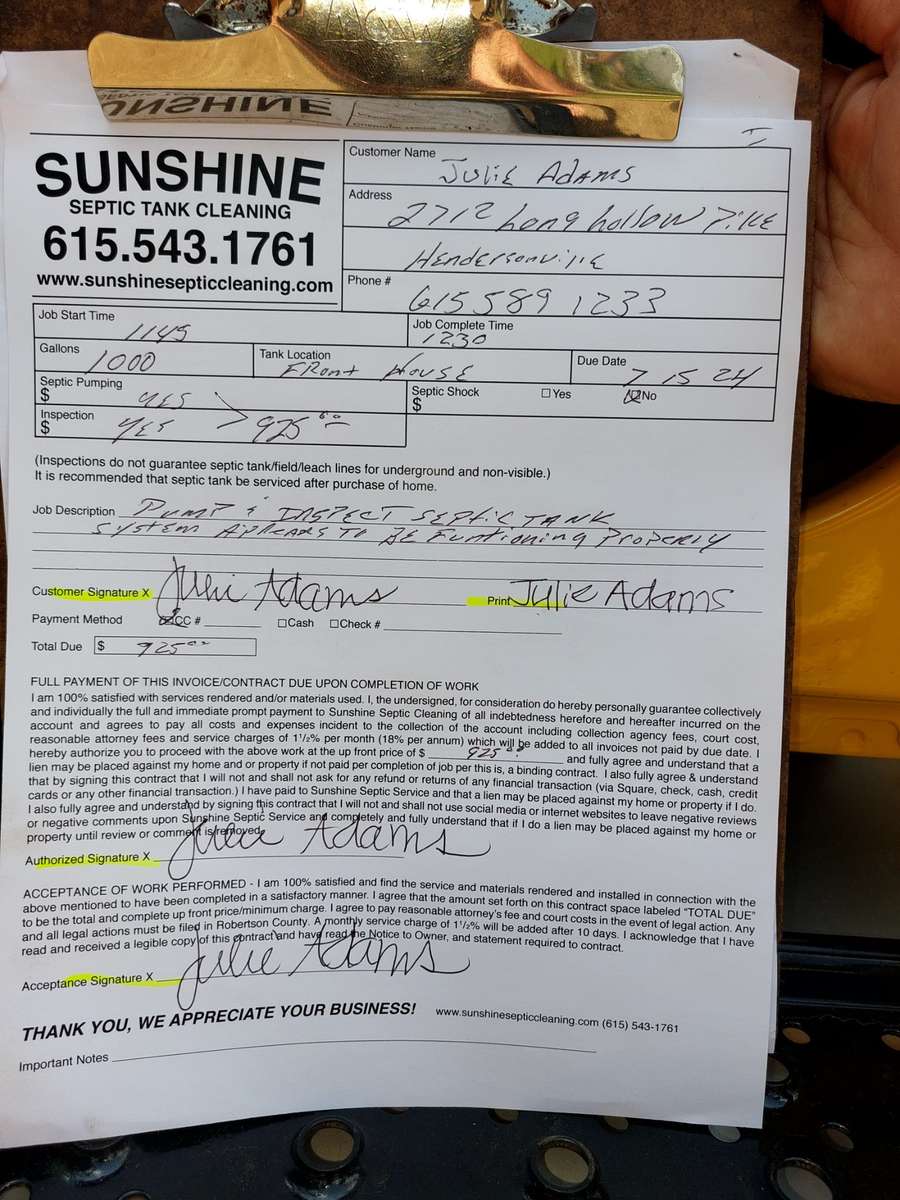 UNSHINE
SUNSHINE
SEPTIC TANK CLEANING
615.543.1761
www.sunshinesepticcleaning.com
Customer Name Julie Adams
Address 2712 Long hollow Pike
Hendersonville
Phone # 615 589 1233
Job Start Time 1145
Job Complete Time 1230
Gallons 1000
Tank Location Front House
Due Date 7 15 24
Septic Pumping $ yes
Septic Shock $ ☐Yes ☒No
Inspection $ yes 925 00
(Inspections do not guarantee septic tank/field/leach lines for underground and non-visible.)
It is recommended that septic tank be serviced after purchase of home.
Job Description Pump & INSPECT SEPTIC TANK
System Appears To Be Funtioning Properly
Customer Signature X Julie Adams Print Julie Adams
Payment Method ☒CC # ☐Cash ☐Check #
Total Due $ 925 00
FULL PAYMENT OF THIS INVOICE/CONTRACT DUE UPON COMPLETION OF WORK
I am 100% satisfied with services rendered and/or materials used. I, the undersigned, for consideration do hereby personally guarantee collectively
and individually the full and immediate prompt payment to Sunshine Septic Cleaning of all indebtedness herefore and hereafter incurred on the
account and agrees to pay all costs and expenses incident to the collection of the account including collection agency fees, court cost,
reasonable attorney fees and service charges of 1½% per month (18% per annum) which will be added to all invoices not paid by due date. I
hereby authorize you to proceed with the above work at the up front price of $ 925 00 and fully agree and understand that a
lien may be placed against my home and or property if not paid per completion of job per this is, a binding contract. I also fully agree & understand
that by signing this contract that I will not and shall not ask for any refund or returns of any financial transaction (via Square, check, cash, credit
cards or any other financial transaction.) I have paid to Sunshine Septic Service and that a lien may be placed against my home or property if I do.
I also fully agree and understand by signing this contract that I will not and shall not use social media or internet websites to leave negative reviews
or negative comments upon Sunshine Septic Service and completely and fully understand that if I do a lien may be placed against my home or
property until review or comment is removed.
Authorized Signature X Julie Adams
ACCEPTANCE OF WORK PERFORMED - I am 100% satisfied and find the service and materials rendered and installed in connection with the
above mentioned to have been completed in a satisfactory manner. I agree that the amount set forth on this contract space labeled "TOTAL DUE"
to be the total and complete up front price/minimum charge. I agree to pay reasonable attorney's fee and court costs in the event of legal action. Any
and all legal actions must be filed in Robertson County. A monthly service charge of 1½% will be added after 10 days. I acknowledge that I have
read and received a legible copy of this contract and have read the Notice to Owner, and statement required to contract.
Acceptance Signature X Julie Adams
THANK YOU, WE APPRECIATE YOUR BUSINESS! www.sunshinesepticcleaning.com (615) 543-1761
Important Notes